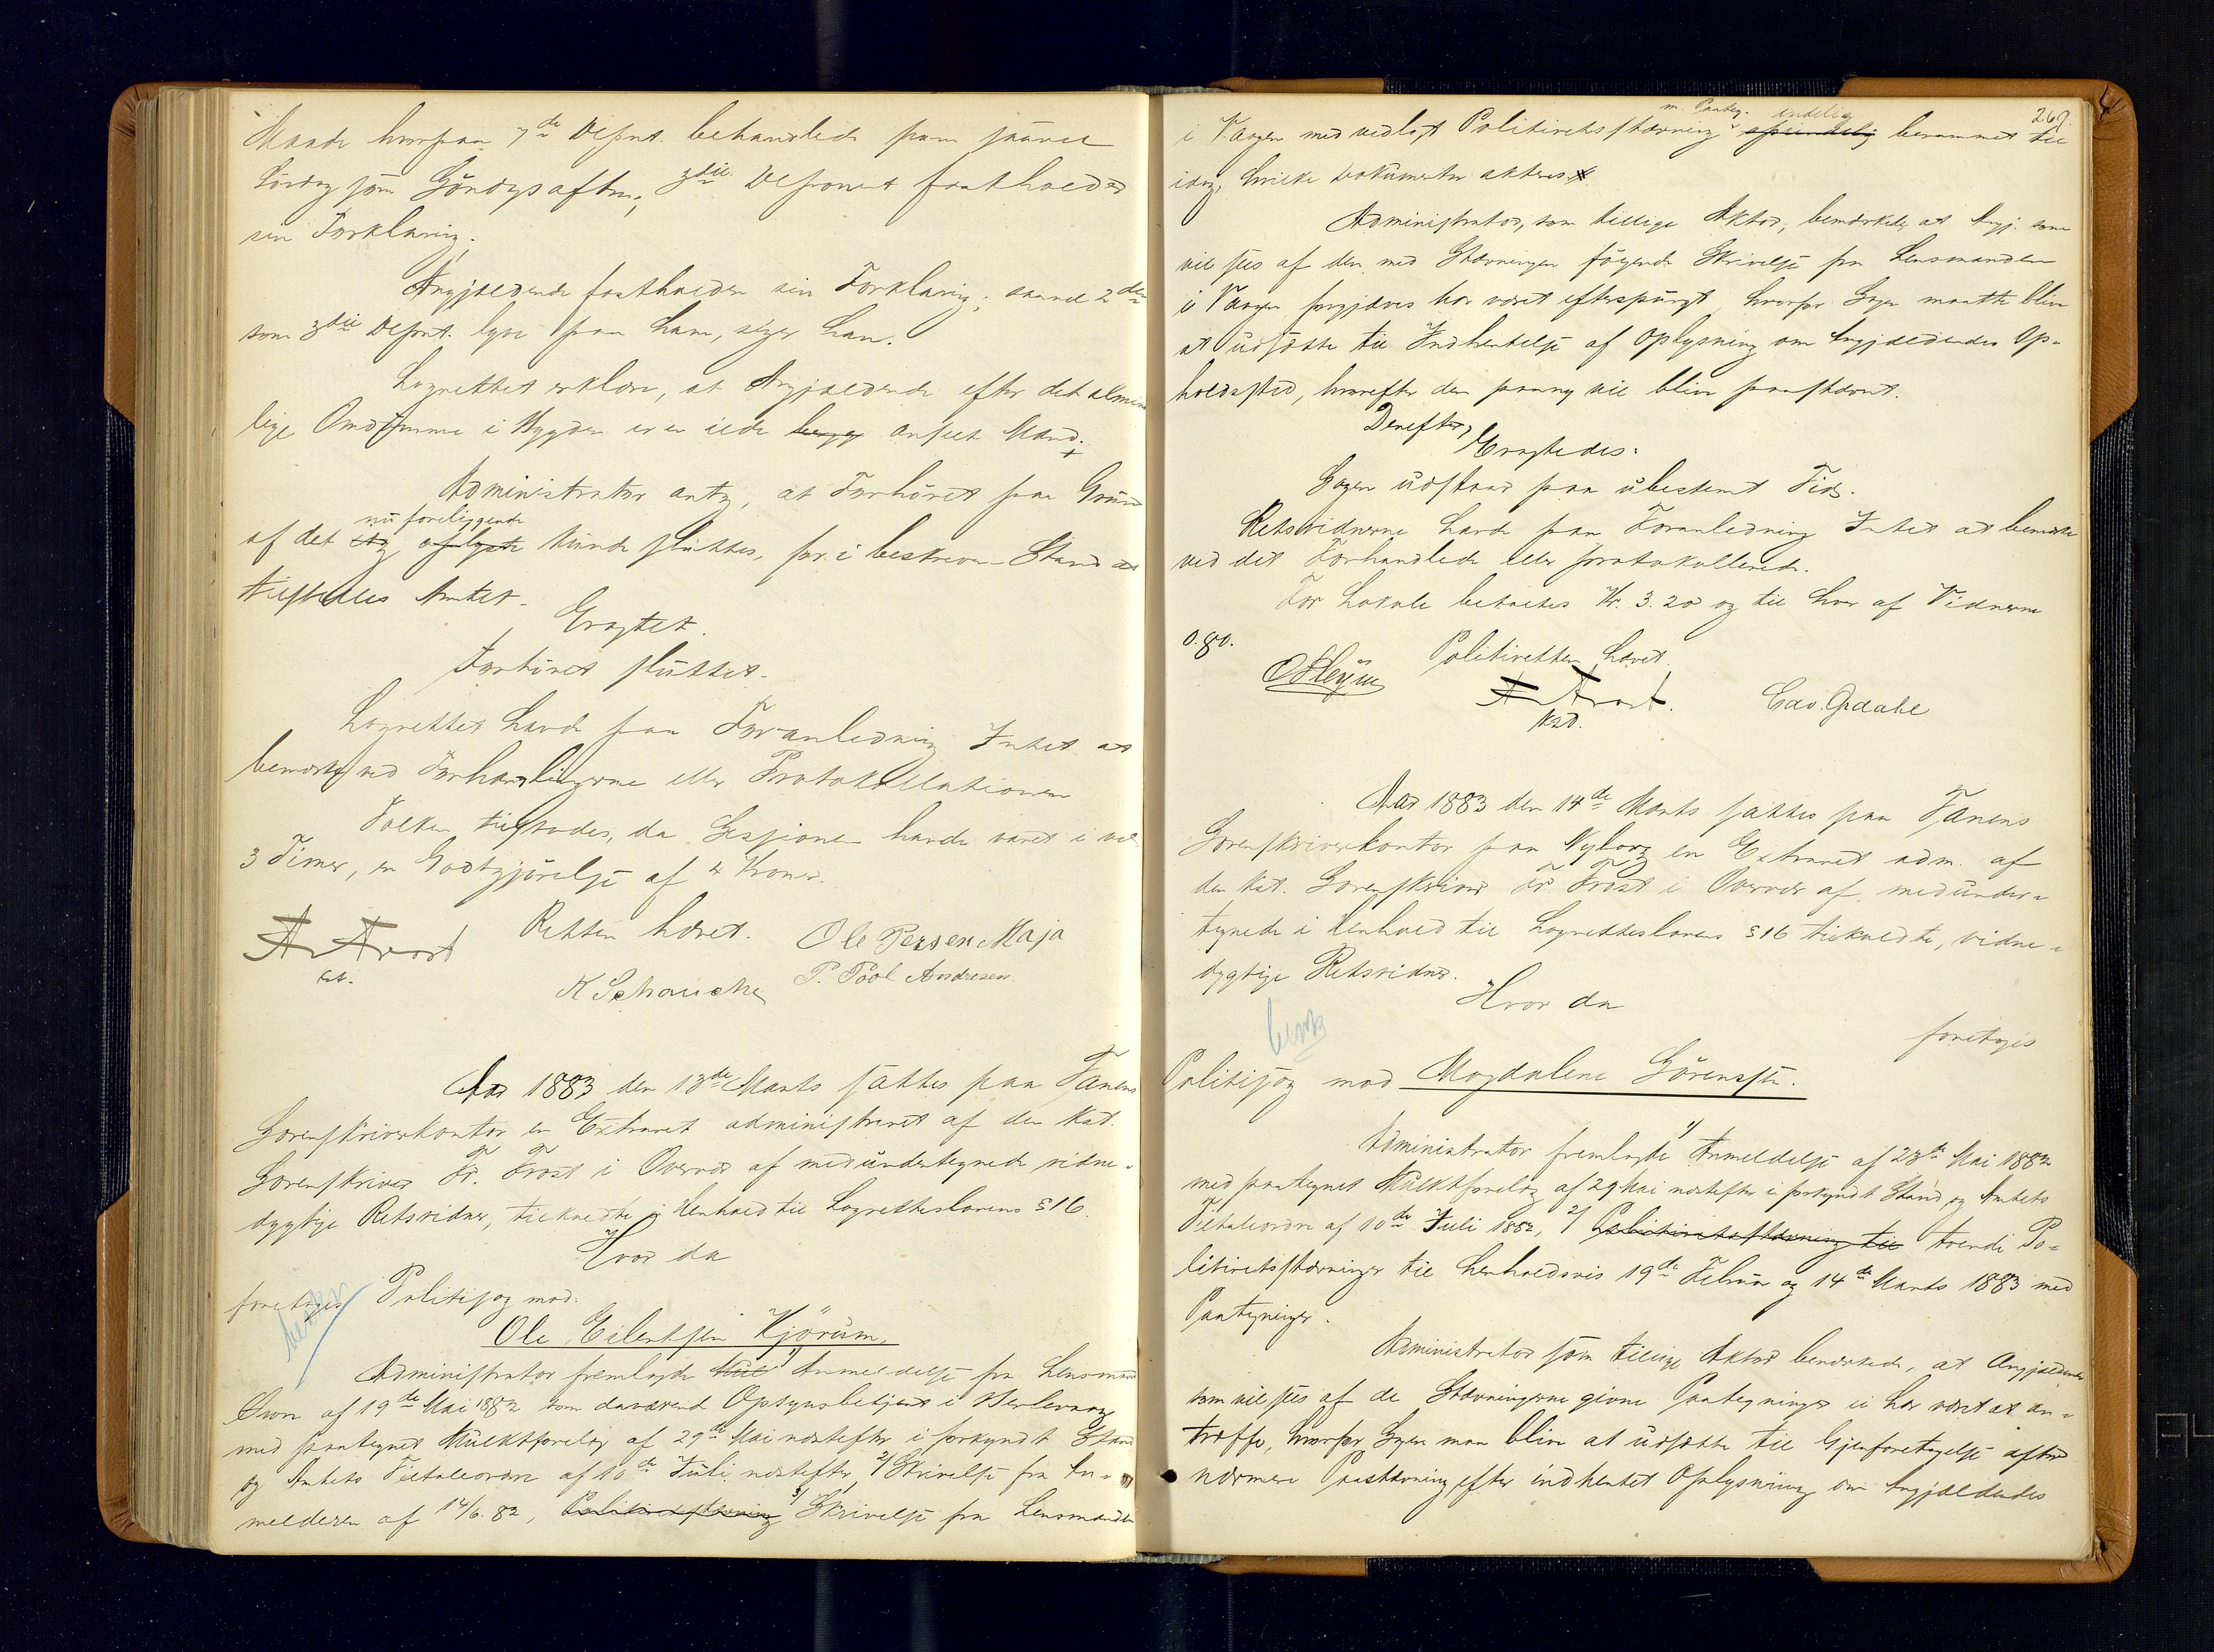 Maade hvorpaa 7de Depnt. behandlede ham saavel
Lördag som Söndagsaften; 3die Deponent fastholder
sin Forklaring.
Angjældende fastholder sin Forklaring; saavel 2den
som 3die Depnt. lyve paa ham, siger han.
Lagrettet erklærer, at Angjældende efter det almin
lige Omdömme i Bygden er en ilde anseet Mand.
Administrator antog, at Forhöret paa Grund
af det nu foreliggende kunde sluttes, for i beskreven Stand at
tilstilles Amtet.
Eragtet.
Forhöret sluttet.
Lagrettet havde paa Foranledning Intet at
bemærke ved Forhandlingerne eller Protokollationen
Tolken tilstodes, da Sessionen havde varet i vel
3 Timer, en Godtgjörelse af 2 Kroner.
Retten hævet.
Fr Frost
kst.
Ole Persen Maja
K Schancke
P. Pool Andresen
Aar 1883 den 13de Marts sattes paa Tanens
Sorenskriverkontor en Extraret administreret af den kst.
Sorenskriver Fr. Frost i Overvær af medundertegnede vidne-
dygtige Retsvidner, tilkaldte i Henhold til Lagretteslovens §16.
Hvor da
foretoges Politisag mod:
Ole Eilertsen Kjörum.
Administrator fremlagde 1/ Anmeldelse fra Lensmand
af 19de Mai 1882 som daværende Opsynsbetjent i Berlevaag
med paategnet Mulktforelæg af 29de Mai næstefter i forkyndt Stand
og Amtets Tiltaleordre af 10de Juli næstefter, 2/ Skrivelse fra An-
melderen af 14/6. 82, 3/ Skrivelse fra Lensmanden
267.
m. Paateg. endelig
i Vargen med vedlagt Politiretsstævning berammet til
idag, hvilke Dokumenter akteres.
Administrator, som tillige Aktor, bemærkede, at Angj. som
vil sees af den med Stævningen fölgende Skrivelse fra Lensmanden
i Vargen forgjæves har været efterspurgt, hvorfor Sagen maatte blive
at udsætte til Indhentelse af Oplysning om Angjældendes Op-
holdssted, hvorefter den paany vil blive paastævnt.
Derefter
Eragtedes:
Sagen udstaar paa ubestemt Tid.
Retsvidnerne havde paa Foranledning Intet at bemærke
ved det Forhandlede eller protokollerede.
For Lokale betaltes Kr. 3.20 og til hver af Vidnerne
0.80.
Politiretten hævet.
Fr Frost.
kst.
Edv. Opdahl
Aar 1883 den 14de Marts sattes paa Tanens
Sorenskriverkontor paa Nyborg en Extraret adm. af
den kst. Sorenskriver Fr Frost i Overvær af medunder-
tegnede i Henhold til Lagretteslovens §16 tilkaldte, vidne-
dygtige Retsvidner.
Hvor da
foretoges
Politisag mod Magdalene Sörensen.
Administrator fremlagde 1/ Anmeldelse af 23de Mai 1882
med paategnet Mulktforelæg af 29 Mai næstefter i forkyndt Stand og Amtets
Tiltaleordre af 10de Juli 1882, 2/ Politiretsstævning til tvende Po-
litiretsstævninger til henholdsvis 19de Februar og 14de Marts 1883 med
Paategninger.
Administrator som tillige Aktor bemærkede, at Angjældende
som vil sees af de Stævningerne givne Paategninger ei har været at an-
træffe, hvorfor Sagen maa blive at udsætte til Gjenforetagelse efter
nærmere Paastævning, efter indhentet Oplysning om Angjældendes